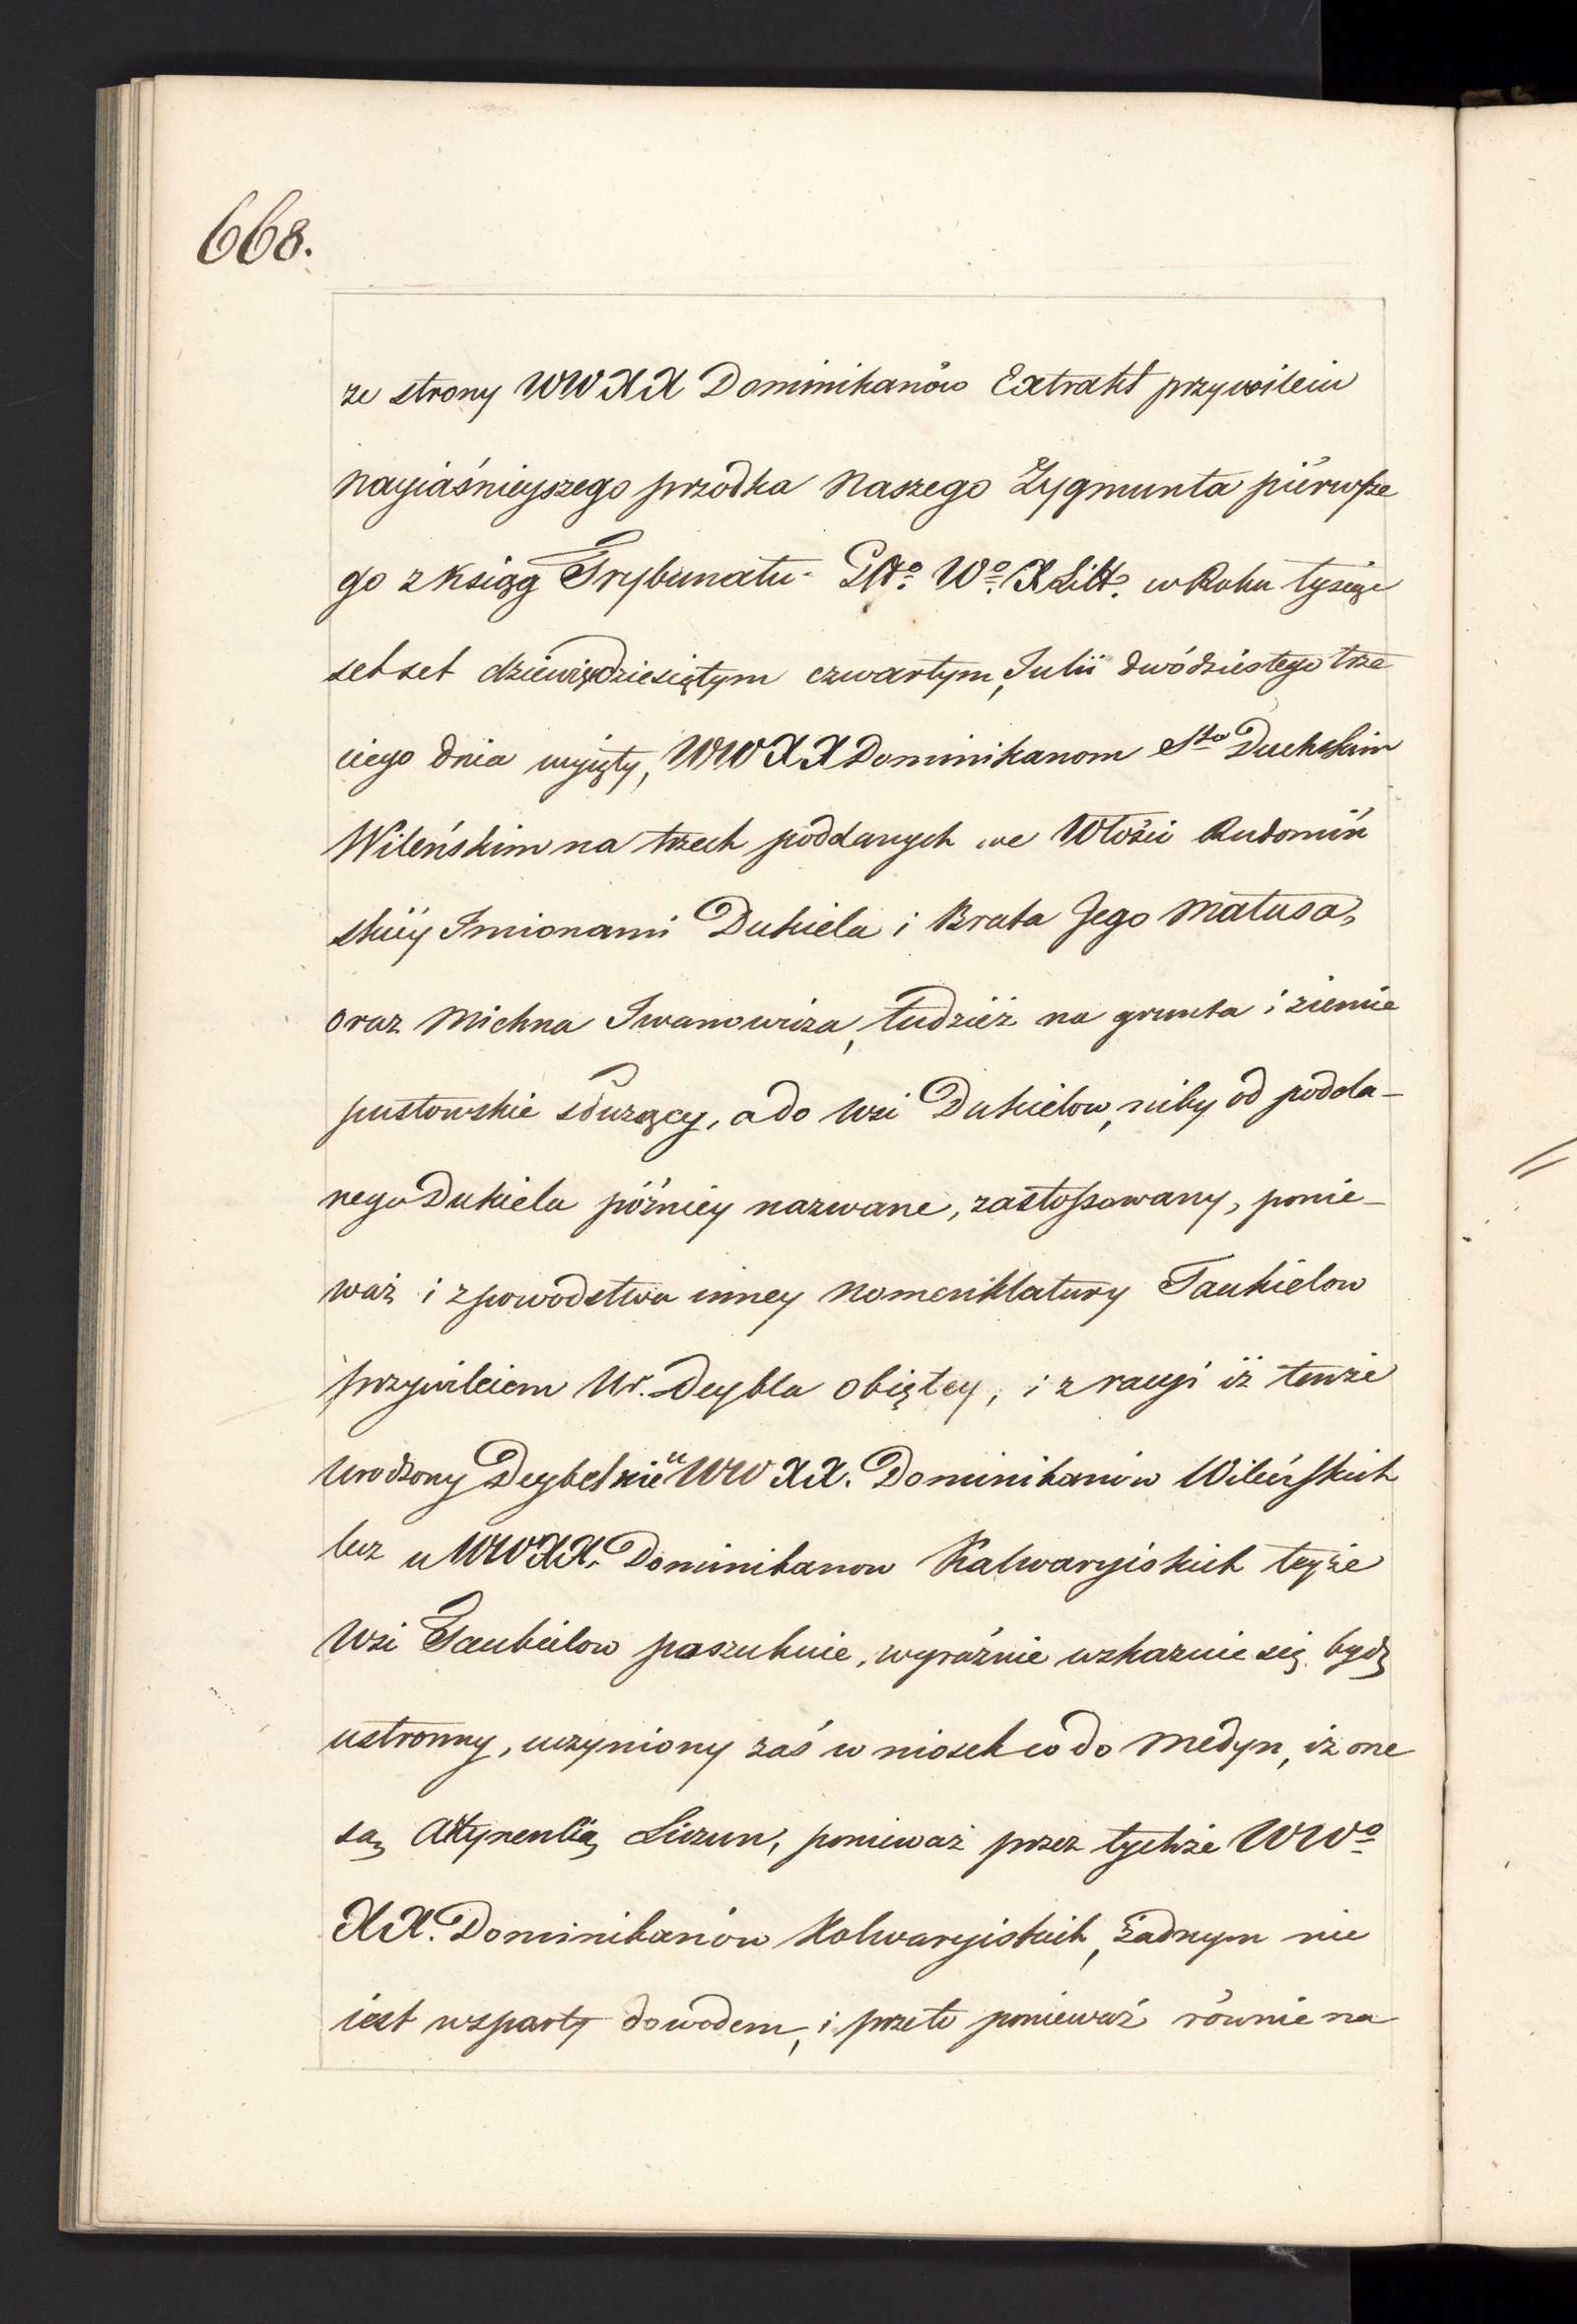 668.
ze strony WWXX Dominikanów Extrakt przywileiu
Nayiaśnieyszego przodka Naszego Zygmunta piérwsze
go z Ksiąg Trybunału Gło Wo XLitt: w Roku tysiąc
setset dziewiędziesiątym czwartym, Julii dwódziestego trze
ciego dnia wyięty, WWXX Dominikanom Sto Duchskim
Wileńskim na trzech poddanych we Włości Rudomiń
skiéy Imionami Dukiela i Brata Jego Matusa,
oraz Michna Iwanowicza, tudzież na grunta i ziemie
pustowskie służący, a do wsi Dukielow, niby od podda-
nego Dukiela późniey nazwane, zastossowany, ponie-
waż i z powodstwa inney Nomenklatury Taukielow
przywileiem Ur. Deybla obiętey, i z racyi iż tenże
Urodzony Deybel nie u WW XX. Dominikanów Wileńskich
lecz u WWXX. Dominikanow Kalwaryiskich teyże
Wsi Taukielow poszukuie, wyraźnie wskazuie się bydź
ustronny, uczyniony zaś wniosek co do Medyn, iż one
są Attynencią Liczun, ponieważ przez tychże WWo
XX. Dominikanów Kalwaryiskich, żadnym nie
iest wsparty dowodem, i przeto ponieważ równie na